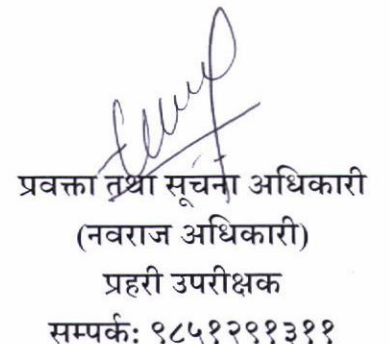 प्रवक्ता तथा सूचना अधिकारी
(नवराज अधिकारी)
प्रहरी उपरीक्षक
सम्पर्क: ९८५१२९१३११